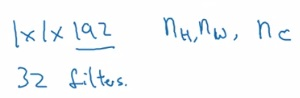 1x1x192 n_H, n_W, n_C
32 filters.